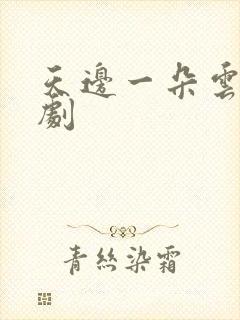 天邊一朵雲
劇
青絲染霜